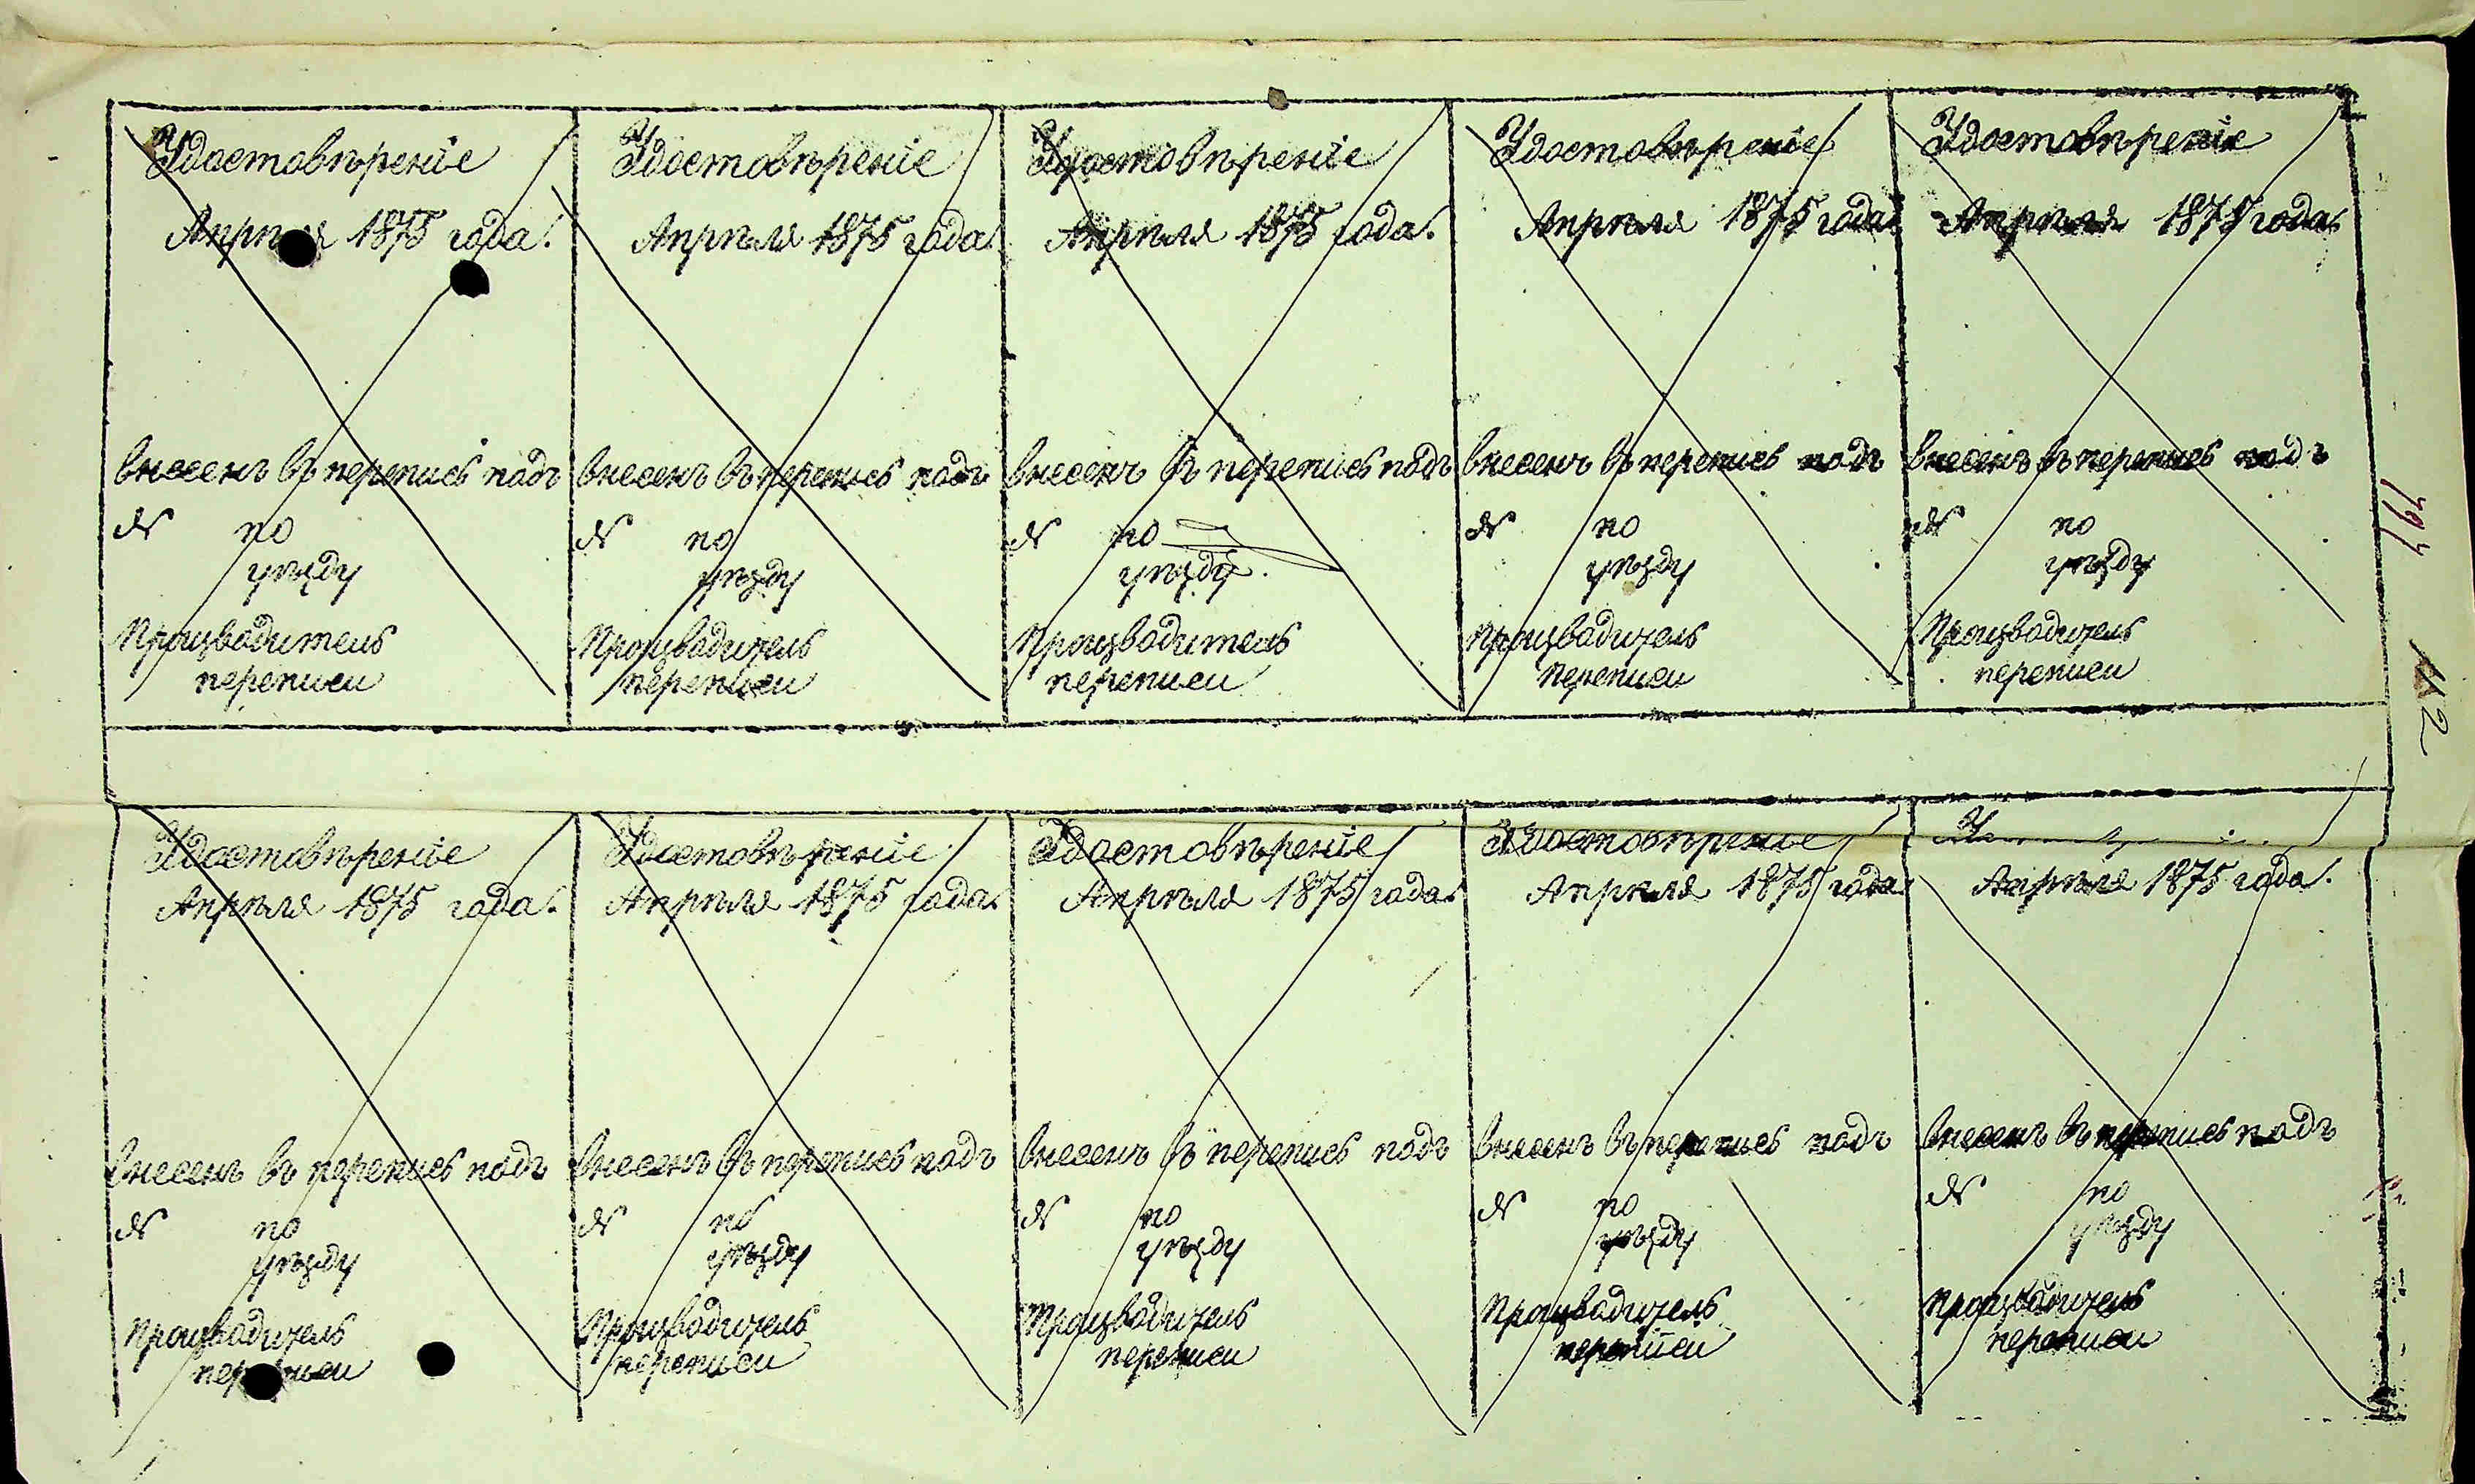 Удостовѣреніе
Апрѣля 1875 года.
внесенъ въ перепись подъ
№ по
уѣзду
Производитель
переписи
Удостовѣреніе
Апрѣля 1875 года.
внесенъ въ перепись подъ
№ по
уѣзду
Производитель
переписи
Удостовѣреніе
Апрѣля 1875 года.
внесенъ въ перепись подъ
№ по
уѣзду.
Производитель
переписи
Удостовѣреніе
Апрѣля 1875 года
внесенъ въ перепись подъ
№ по
уѣзду
Производитель
переписи
Удостовѣреніе
Апрѣля 1875 года.
внесенъ въ перепись подъ
№ по
уѣзду
Производитель
переписи
Удостовѣреніе
Апрѣля 1875 года.
внесенъ въ перепись подъ
№ по
уѣзду
Производитель
переписи
Удостовѣреніе
Апрѣля 1875 года.
внесенъ въ перепись подъ
№ по
уѣзду
Производитель
переписи
Удостовѣреніе
Апрѣля 1875 года.
внесенъ въ перепись подъ
№ по
уѣзду
Производитель
переписи
Удостовѣреніе
Апрѣля 1875 года.
внесенъ въ перепись подъ
№ по
уѣзду
Производитель
переписи
Апрѣля 1875 года.
внесенъ въ перепись подъ
№ по
уѣзду
Производитель
переписи